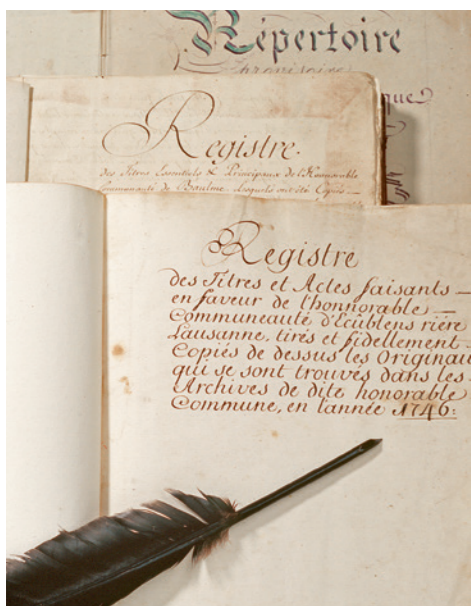 Répertoire
provisoire
que
Registre.
des Titres Essentiels & Principaux de l'Honnorable
Communauté de Baulme, lesquels ont été Copiés —
Registre
des Titres et Actes faisants —
en faveur de l'honnorable —
Communeauté d'Ecublens riére
Lausanne, tirés et fidellement
Copiés de dessus les Originau
qui se sont trouvés dans les
Archives de dite honorable
Commune, en l'année 1746: